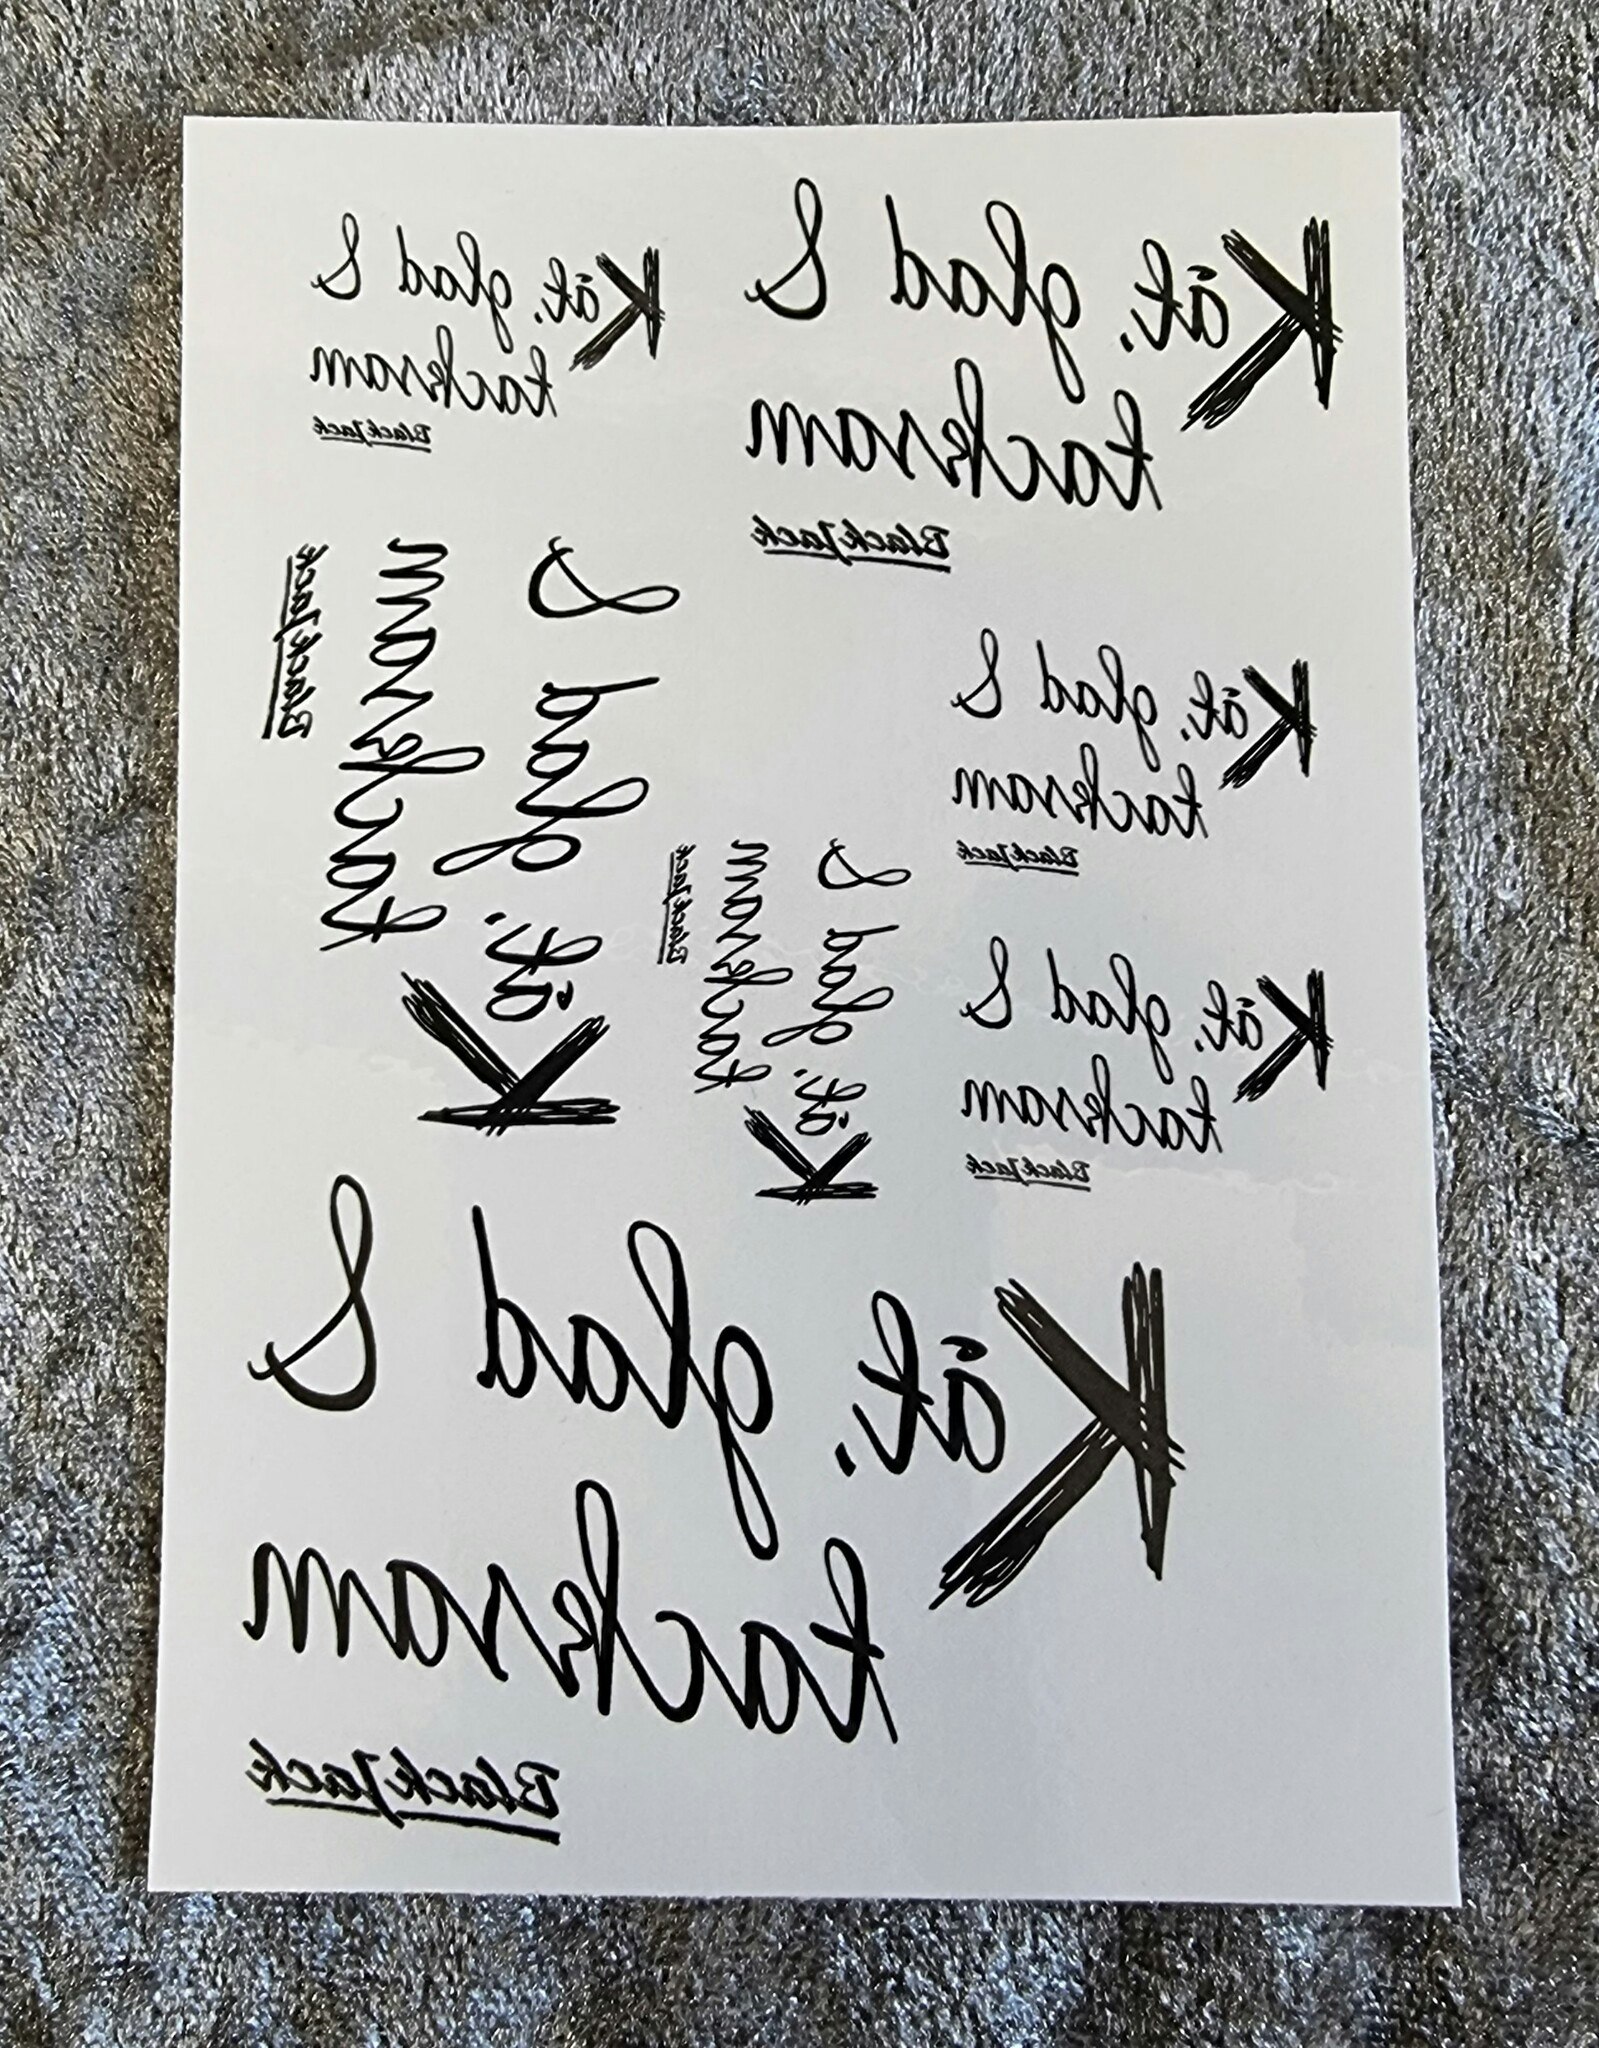 Kåt, glad &
tacksam
BlackJack
Kåt, glad &
tacksam
BlackJack
Kåt, glad &
tacksam
BlackJack
Kåt, glad &
tacksam
BlackJack
Kåt, glad &
tacksam
BlackJack
Kåt, glad &
tacksam
BlackJack
Kåt, glad &
tacksam
BlackJack